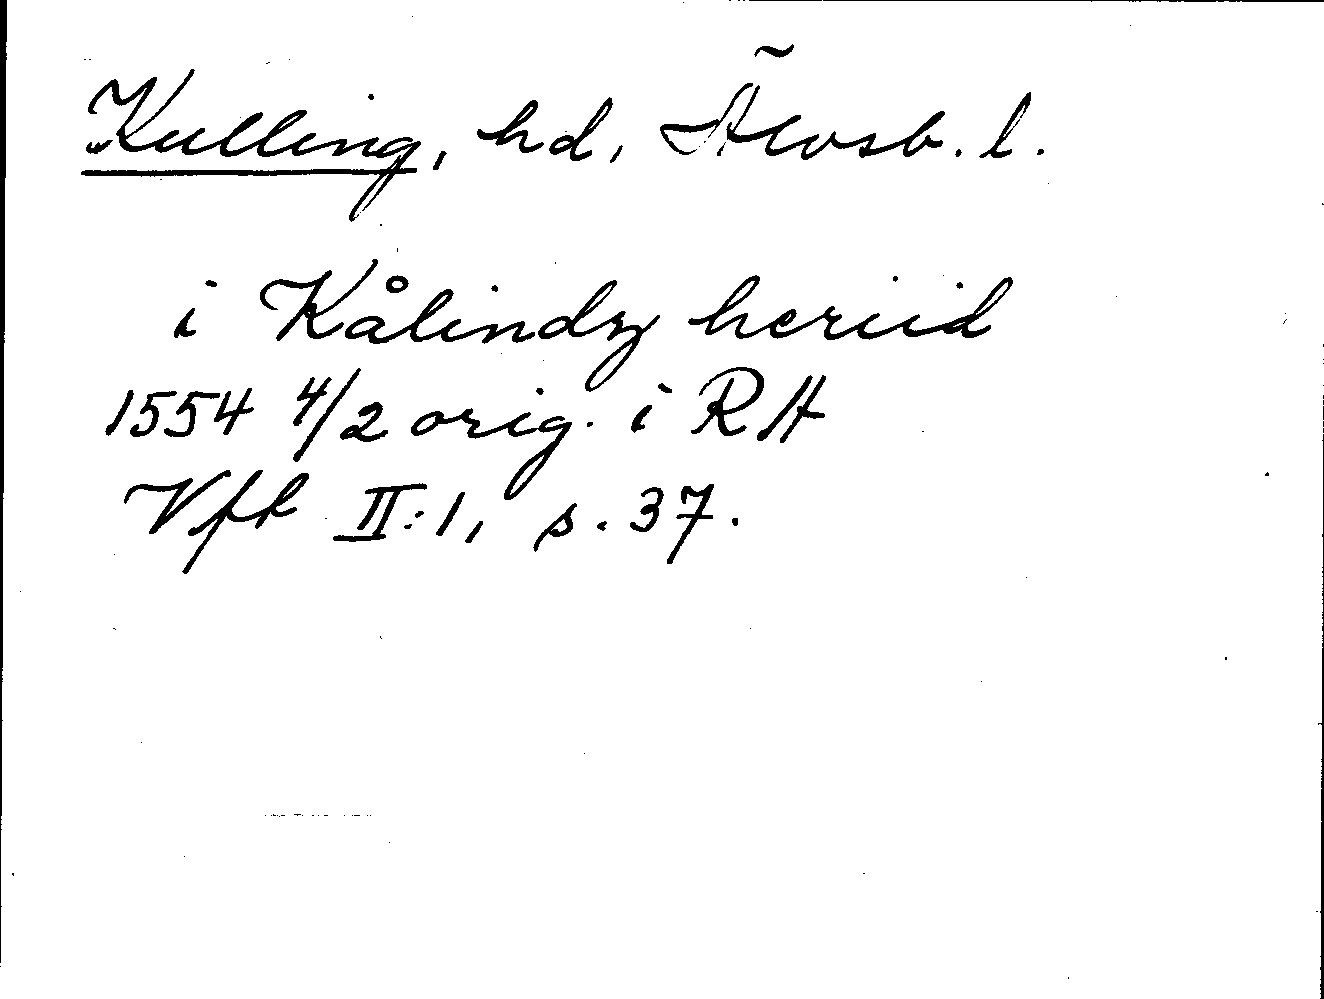 Kulling, hd, Älvsb. l.
i Kålindz heriid
1554 4/2 orig. i RA
Vft II:1, s. 37.